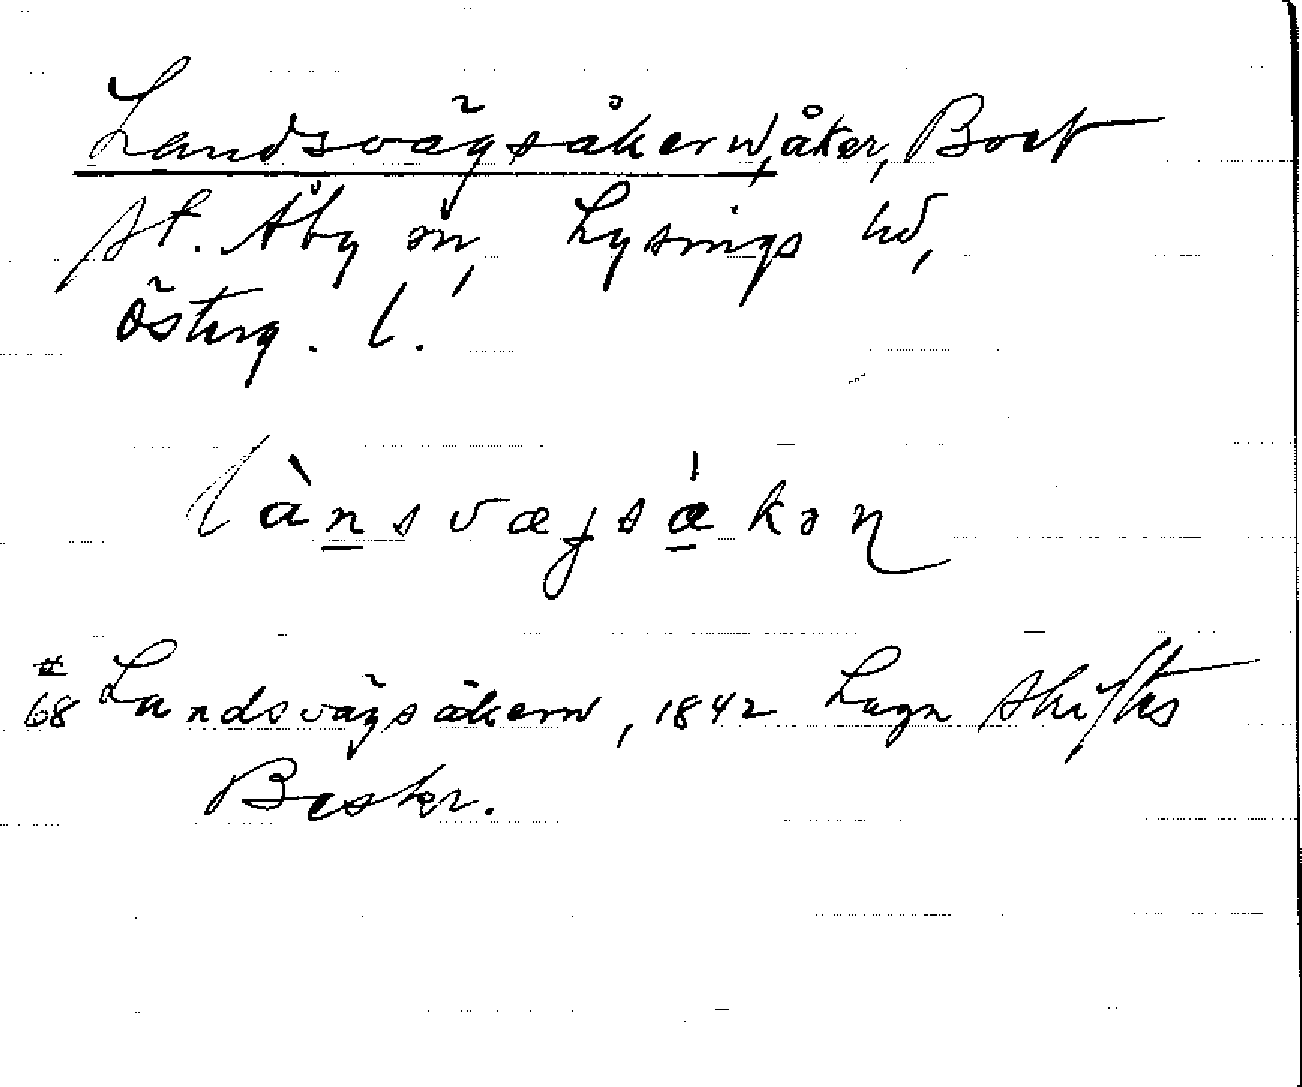 Landsvägsåkern, åker, Boet
st. Åby sn, Lysings hd,
Österg. l.
lànsvæjsákən
# 68 Landsvägsåkern, 1842 Laga Skiftes
Beskr.